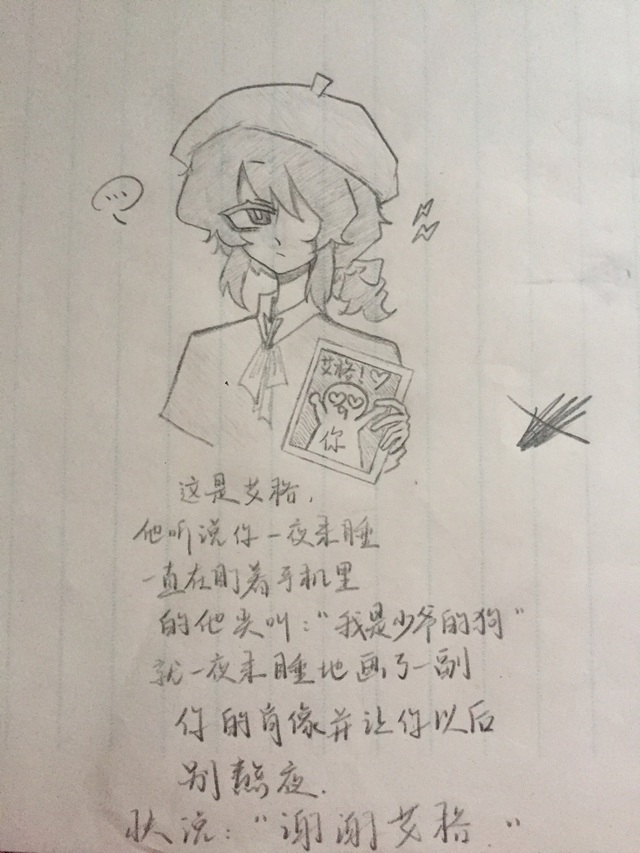 ...
艾格!♡
你
这是艾格,
他听说你一夜未睡
一直在盯着手机里
的他尖叫:"我是少爷的狗"
就一夜未睡地画了一副
你的肖像并让你以后
别熬夜.
快说:"谢谢艾格."